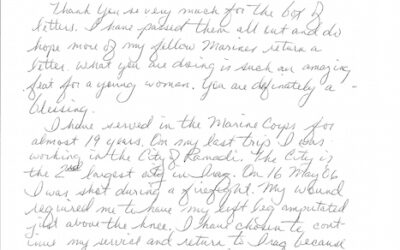 Thank you so very much for the box of
letters. I have passed them all out and do
hope more of my fellow Marines return a
letter. What you are doing is such an amazing
feat for a young woman. You are definately a
blessing.
I have served in the Marine Corps for
almost 19 years. On my last trip I was
working in the City of Ramadi. The City is
the largest city in Iraq. On 16 May 06
I was shot during a firefight. My wound
required me to have my left leg amputated
just above the knee. I have chosen to cont-
inue my service and return to Iraq because